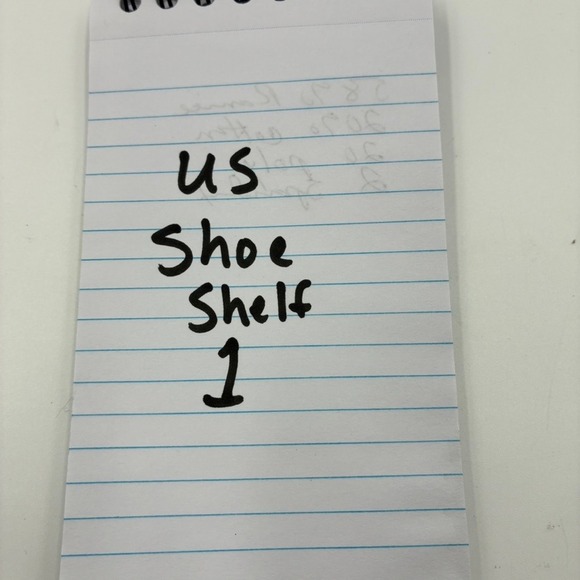 US
Shoe
Shelf
1